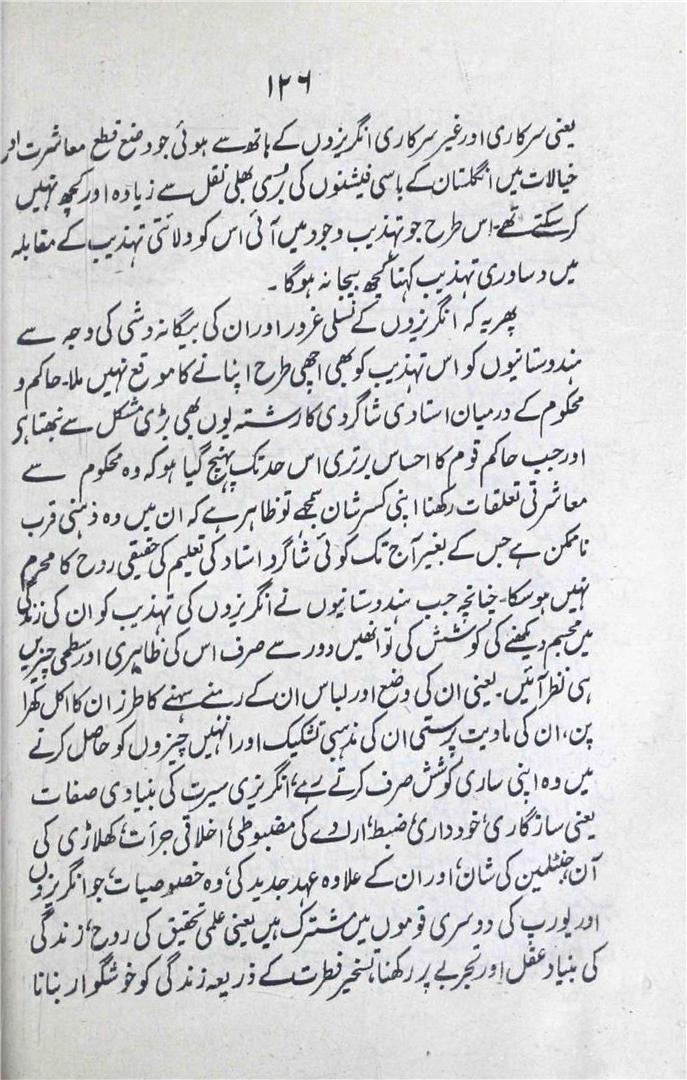 ۱۲۶
یعنی سرکاری اور غیر سرکاری انگریزوں کے ہاتھ سے ہوئی جو وضع قطع معاشرت اور
خیالات میں انگلستان کے باسی فیشنوں کی بُری بھلی نقل سے زیادہ اور کچھ نہیں
کر سکتے تھے۔ اس طرح جو تہذیب وجود میں آئی اس کو ولائتی تہذیب کے مقابلہ
میں دساوری تہذیب کہنا کچھ بیجا نہ ہوگا۔
پھر یہ کہ انگریزوں کے نسلی غرور اور ان کی بیگانہ وشی کی وجہ سے
ہندوستانیوں کو اس تہذیب کو بھی اچھی طرح اپنانے کا موقع نہیں ملا۔ حاکم و
محکوم کے درمیان استادی شاگردی کا رشتہ یوں بھی بڑی مشکل سے نبھتا ہی
اور جب حاکم قوم کا احساس برتری اس حد تک پہنچ گیا ہو کہ وہ محکوم سے
معاشرتی تعلقات رکھنا اپنی کسر شان سمجھے تو ظاہر ہے کہ ان میں وہ ذہنی قرب
ناممکن ہے جس کے بغیر آج تک کوئی شاگرد استاد کی تعلیم کی حقیقی روح کا محرم
نہیں ہو سکا۔ چنانچہ جب ہندوستانیوں نے انگریزوں کی تہذیب کو ان کی زندگی
میں مجسم دیکھنے کی کوشش کی تو انھیں دور سے صرف اس کی ظاہری اور سطحی چیزیں
ہی نظر آئیں۔ یعنی ان کی وضع اور لباس ان کے رہنے سہنے کا طرز ان کا اکل کھرا
پن، ان کی مادیت پرستی ان کی مذہبی تشکیک اور انہیں چیزوں کو حاصل کرنے
میں وہ اپنی ساری کوشش صرف کرتے رہے، انگریزی سیرت کی بنیادی صفات
یعنی سازگاری، خودداری، ضبط، ارادے کی مضبوطی، اخلاقی جرأت، کھلاڑی کی
آن، جنٹلمین کی شان، اور ان کے علاوہ عہد جدید کی، وہ خصوصیات، جو انگریزوں
اور یورپ کی دوسری قوموں میں مشترک ہیں یعنی علمی تحقیق کی روح، زندگی
کی بنیاد عقل اور تجربے پر رکھنا، تسخیر فطرت کے ذریعہ زندگی کو خوشگوار بنانا